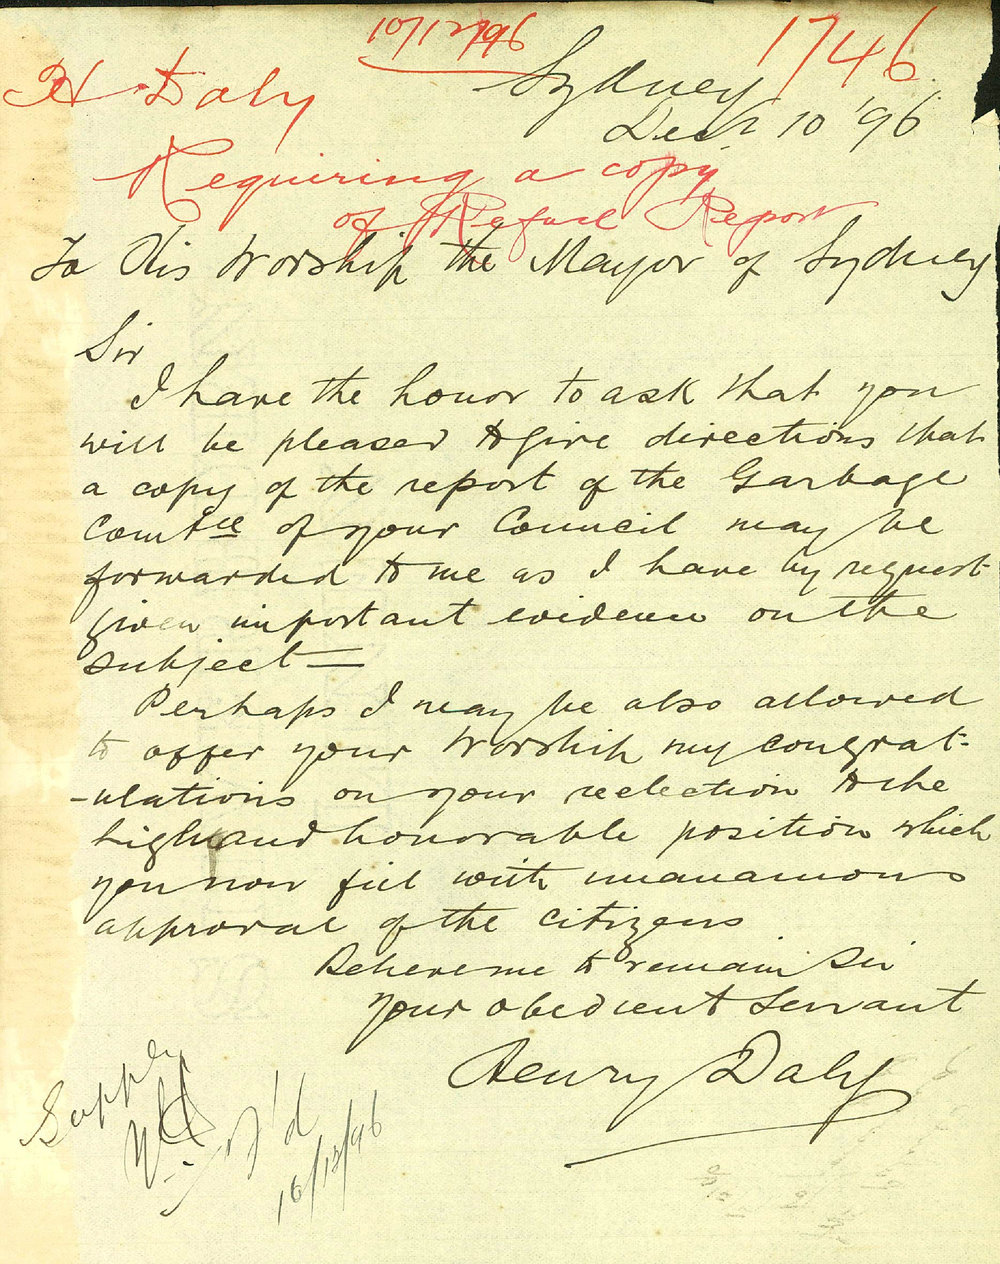 10/12/96
1746
H Daly
Sydney
Dec.r 10 '96
Requiring a copy
of Refuse Report
To His Worship the Mayor of Sydney
Sir
I have the honor to ask that you
will be pleased to give directions that
a copy of the report of the Garbage
Comtee of your Council may be
forwarded to me as I have by request
given important evidence on the
subject —
Perhaps I may be also allowed
to offer your Worship my congrat-
-ulations on your reelection to the
high and honorable position which
you now fill with unanamous
approval of the citizens
Believe me to remain Sir
your obedient servant
Henry Daly
Supply
16/12/96